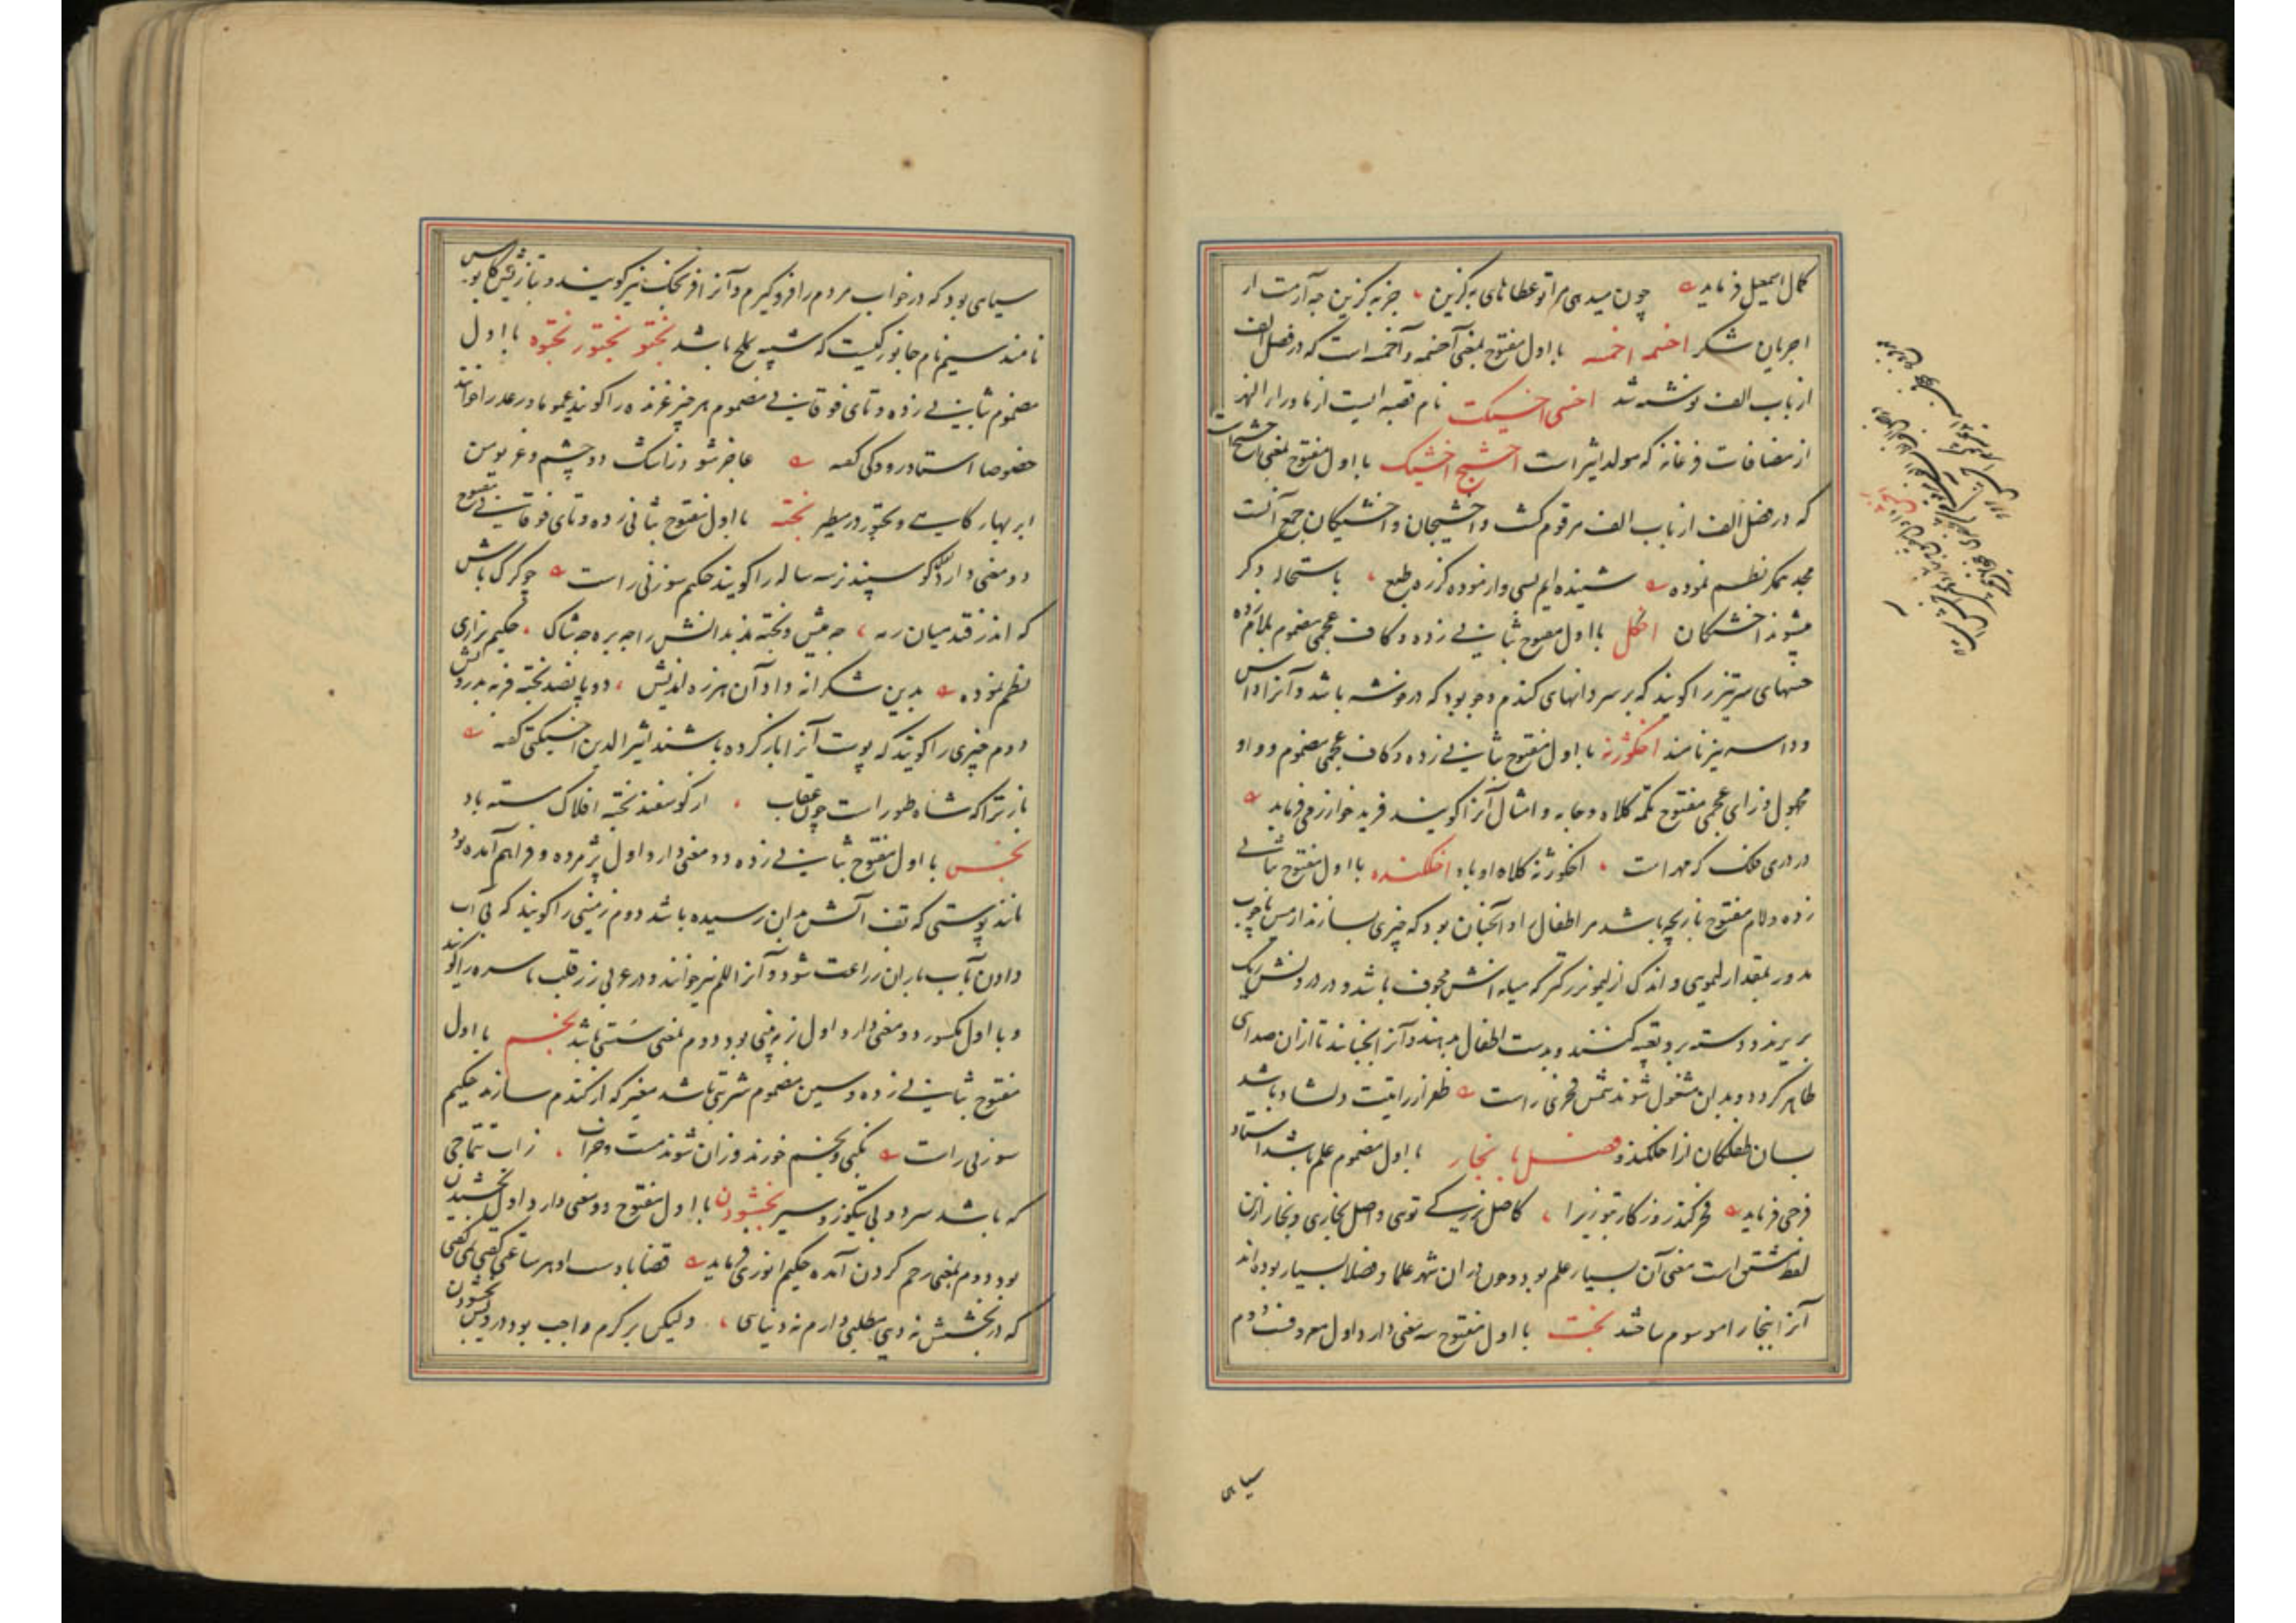 کمال اسمعیل فرماید چون میدهی مرا تو عطاهای به گزین جز به گزین چه آرمت از
اجریان شکر اخسمه اخمسه با اول مفتوح بمعنی آخسمه و آخمسه است که در فصل الف
از باب الف نوشته شد اخسی اخسیکت نام قصبه ایست از ماوراء النهر
از مضافات فرغانه که مولد اثیر است اخشیج اخشیک با اول مفتوح بمعنی آخشیج است
که در فصل الف از باب الف مرقوم گشت و اخشیجان و اخشیکان جمع آنست
مجد همگر نظم نموده شنیده ایم بسی وار نموده کزره طبع باستحاله دگر
میشوند اخشیکان اخگل با اول مفتوح بثانی زده و کاف عجمی مضموم بلام زده
خسهای سرتیز را گویند که بر سر دانهای گندم و جو بود که در خوشه باشد و آنرا داس
و داسه نیز نامند اخگوژنه با اول مفتوح بثانی زده و کاف عجمی مضموم و واو
مجهول و زای عجمی مفتوح تکمه کلاه و جامه و امثال آنرا گویند فرید خوارزمی فرماید
در دری فلک که مهر است اخگوژنه کلاه او باد اخلکنده با اول مفتوح بثانی
زده و لام مفتوح بازیچه باشد مر اطفال را و آنچنان بود که چیزی بسازند از مس یا چوب
مدور بمقدار لیموی و اندک از لیمو بزرگتر که میانه اش مجوف باشد و در درونش سنگ
بریزند و دسته برو تعبیه کنند و بدست اطفال بدهند و آنرا بجنبانند تا ازان صدای
ظاهر گردد و بدان مشغول شوند شمس فخری راست ظفر از رایتت دلشاد باشد
بسان طفلکان از اخلکندو فصل با بخار با اول مضموم علم باشد استاد
فرخی فرماید فخر کند روزگار بتو زیرا کاصل بزرگی توی و اصل بخاری و بخارا ازین
لفظ مشتق است معنی آن بسیار علم بود و چون دران شهر علما و فضلا بسیار بوده اند
آنرا ببخارا موسوم ساختند بخت با اول مفتوح سه معنی دارد اول معروفست دوم
سیاهی
سیاهی بود که در خواب مردم را فرو گیرم و آنرا فرنجک نیز گویند و بتازیش کابوس
نامند سیم نام جانورکیست که شبیه بملخ باشد بختو بختور بختوه با اول
مضموم بثانی زده و تای فوقانی مضموم هر چیز غرنده را گویند عموما و رعد را خوانند
خصوصا استاد رودکی گفته عاجز شود ز اشک دو چشم و غریو من
ابر بهار گاهی و بختور در مطیر بخته با اول مفتوح بثانی زده و تای فوقانی مفتوح
دو معنی دارد اول گوسپند نر سه ساله را گویند حکیم سوزنی راست چو گرگ باش
که اندر فتد میان رمه چه میش و بخته بدندانش را چه بره چه شاک حکیم نزاری
نظم نموده بدین شکرانه داد آن هرزه اندیش دو پانصد بخته فربه بدرویش
دوم چیزی را گویند که پوست آنرا باز کرده باشند اثیر الدین اخسیکتی گفته
باز ترا که شاه طیور است چون عقاب از گوسفند بخته افلاک مسته باد
بخس با اول مفتوح بثانی زده دو معنی دارد اول پژمرده و فراهم آمده بود
مانند پوستی که تف آتش بدان رسیده باشد دوم زمینی را گویند که بی آب
دادن بآب باران زراعت شود و آنرا للم نیز خوانند و در عربی زر قلب ناسره را گویند
و با اول مکسور دو معنی دارد اول نرمه بینی بود دوم بمعنی سستی باشد بخسم با اول
مفتوح بثانی زده و سین مضموم شربتی باشد مغیر که از گندم سازند حکیم
سوزنی راست بگنی و بخسم خورند و زان شوند مست و خراب
که باشد سرد و بی بگوز و سیر بخشودن با اول مفتوح دو معنی دارد اول بخشیدن
بود دوم بمعنی رحم کردن آمده حکیم انوری فرماید قضا با دست او هر ساعتی گفتی همی گفتی
که در بخشش نه دین مطلبی دارم نه دنیاسی ولیکن بر کرم واجب بود درویش بخشودن